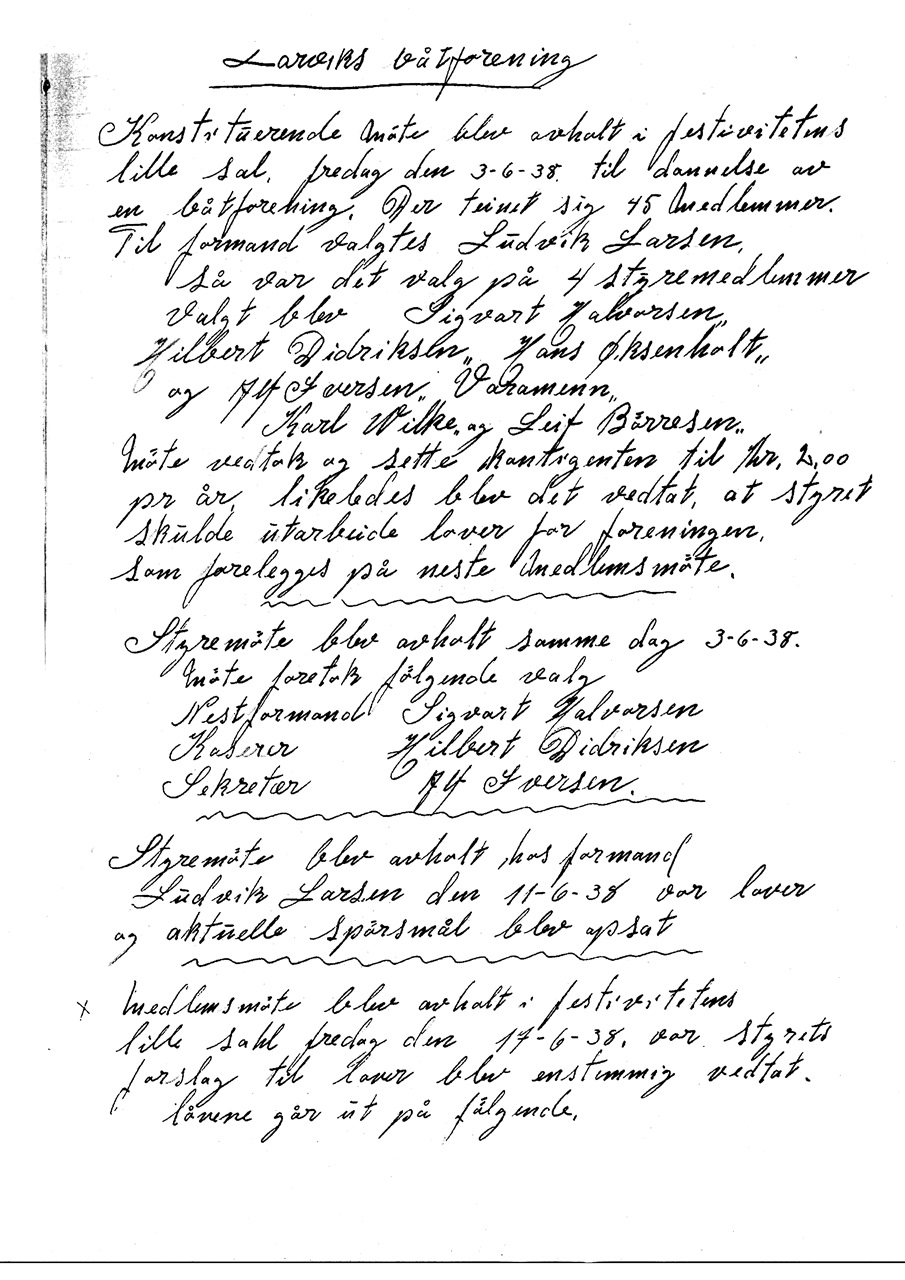 Larviks båtforening
Konstituerende möte blev avholt i festivitetens
lille sal, fredag den 3-6-38. til dannelse av
en båtforening. Der teinet sig 45 medlemmer.
Til formand valgtes Ludvik Larsen,
så var det valg på 4 styremedlemmer
valgt blev Sigvart Halvorsen„
Hilbert Didriksen„ Hans Øksenholt„
og Alf Iversen„ Varamenn„
Karl Wilke„ og Leif Börresen„
Möte vedtok og sette kontigenten til Kr. 2,00
pr år, likeledes blev det vedtat, at styret
skulde utarbeide lover for foreningen,
som forelegges på neste medlemsmöte.
Styremöte blev avholt samme dag 3-6-38.
Möte foretok fölgende valg
Nestformand Sigvart Halvorsen
Kaserer Hilbert Didriksen
Sekretær Alf Iversen.
Styremöte blev avholt, hos formand
Ludvik Larsen den 11-6-38 vor lover
og aktuelle spörsmål blev opsat
x Medlemsmöte blev avholt i festivitetens
lille sahl fredag den 17-6-38. vor styrets
forslag til lover blev enstemmig vedtat.
låvene går ut på fölgende.